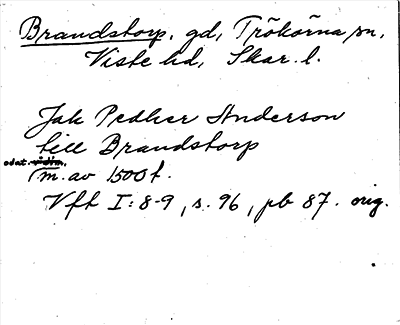 Brandstorp, gd, Trökörna sn,
Viste hd, Skar. l.
Jak Pedher Anderson
till Brandstorp
odat. vidim.
m. av 1500 t.
Vft I: 8-9, s. 96, pb 87. orig.